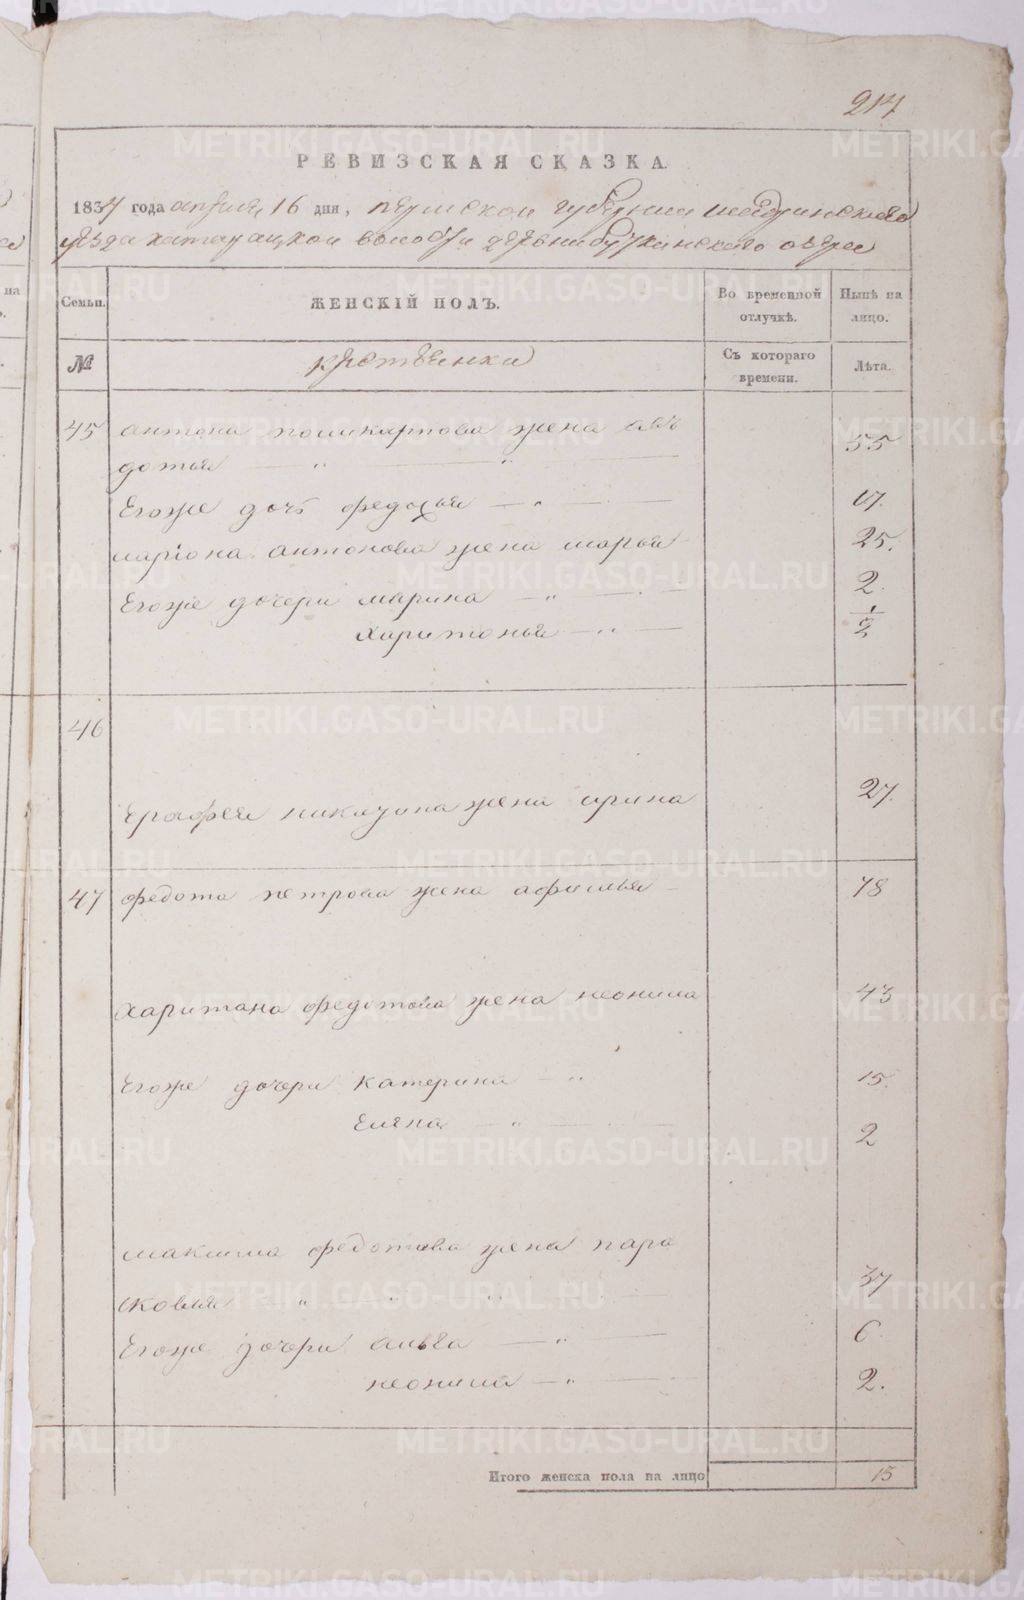 217
РЕВИЗСКАЯ СКАЗКА.
1834 года апреля 16 дня, пермской губернии шадринского
уезда катарацкой волости деревни буткинского озера
Семьи. ЖЕНСКІЙ ПОЛЪ. Во временной отлучкѣ. Нынѣ на лицо.
№ крестьянки Съ котораго времени. Лѣта.
45 антона поликарпова жена авъ
дотья 55
Егоже дочь федосья 17.
лариона антонова жена марья 25.
Егоже дочери марина 2.
Харитонья 1/2
46
Ерофея никазона жена ирина 27.
47 федота петрова жена афимья 78
Харитана федотова жена неонила 43
Егоже дочери катерина 15.
Елена 2
максима федотова жена пара
сковья 37
Егоже дочери 6
неонила 2.
Итого женска пола на лицо 15
METRIKI.GASO-URAL.RU